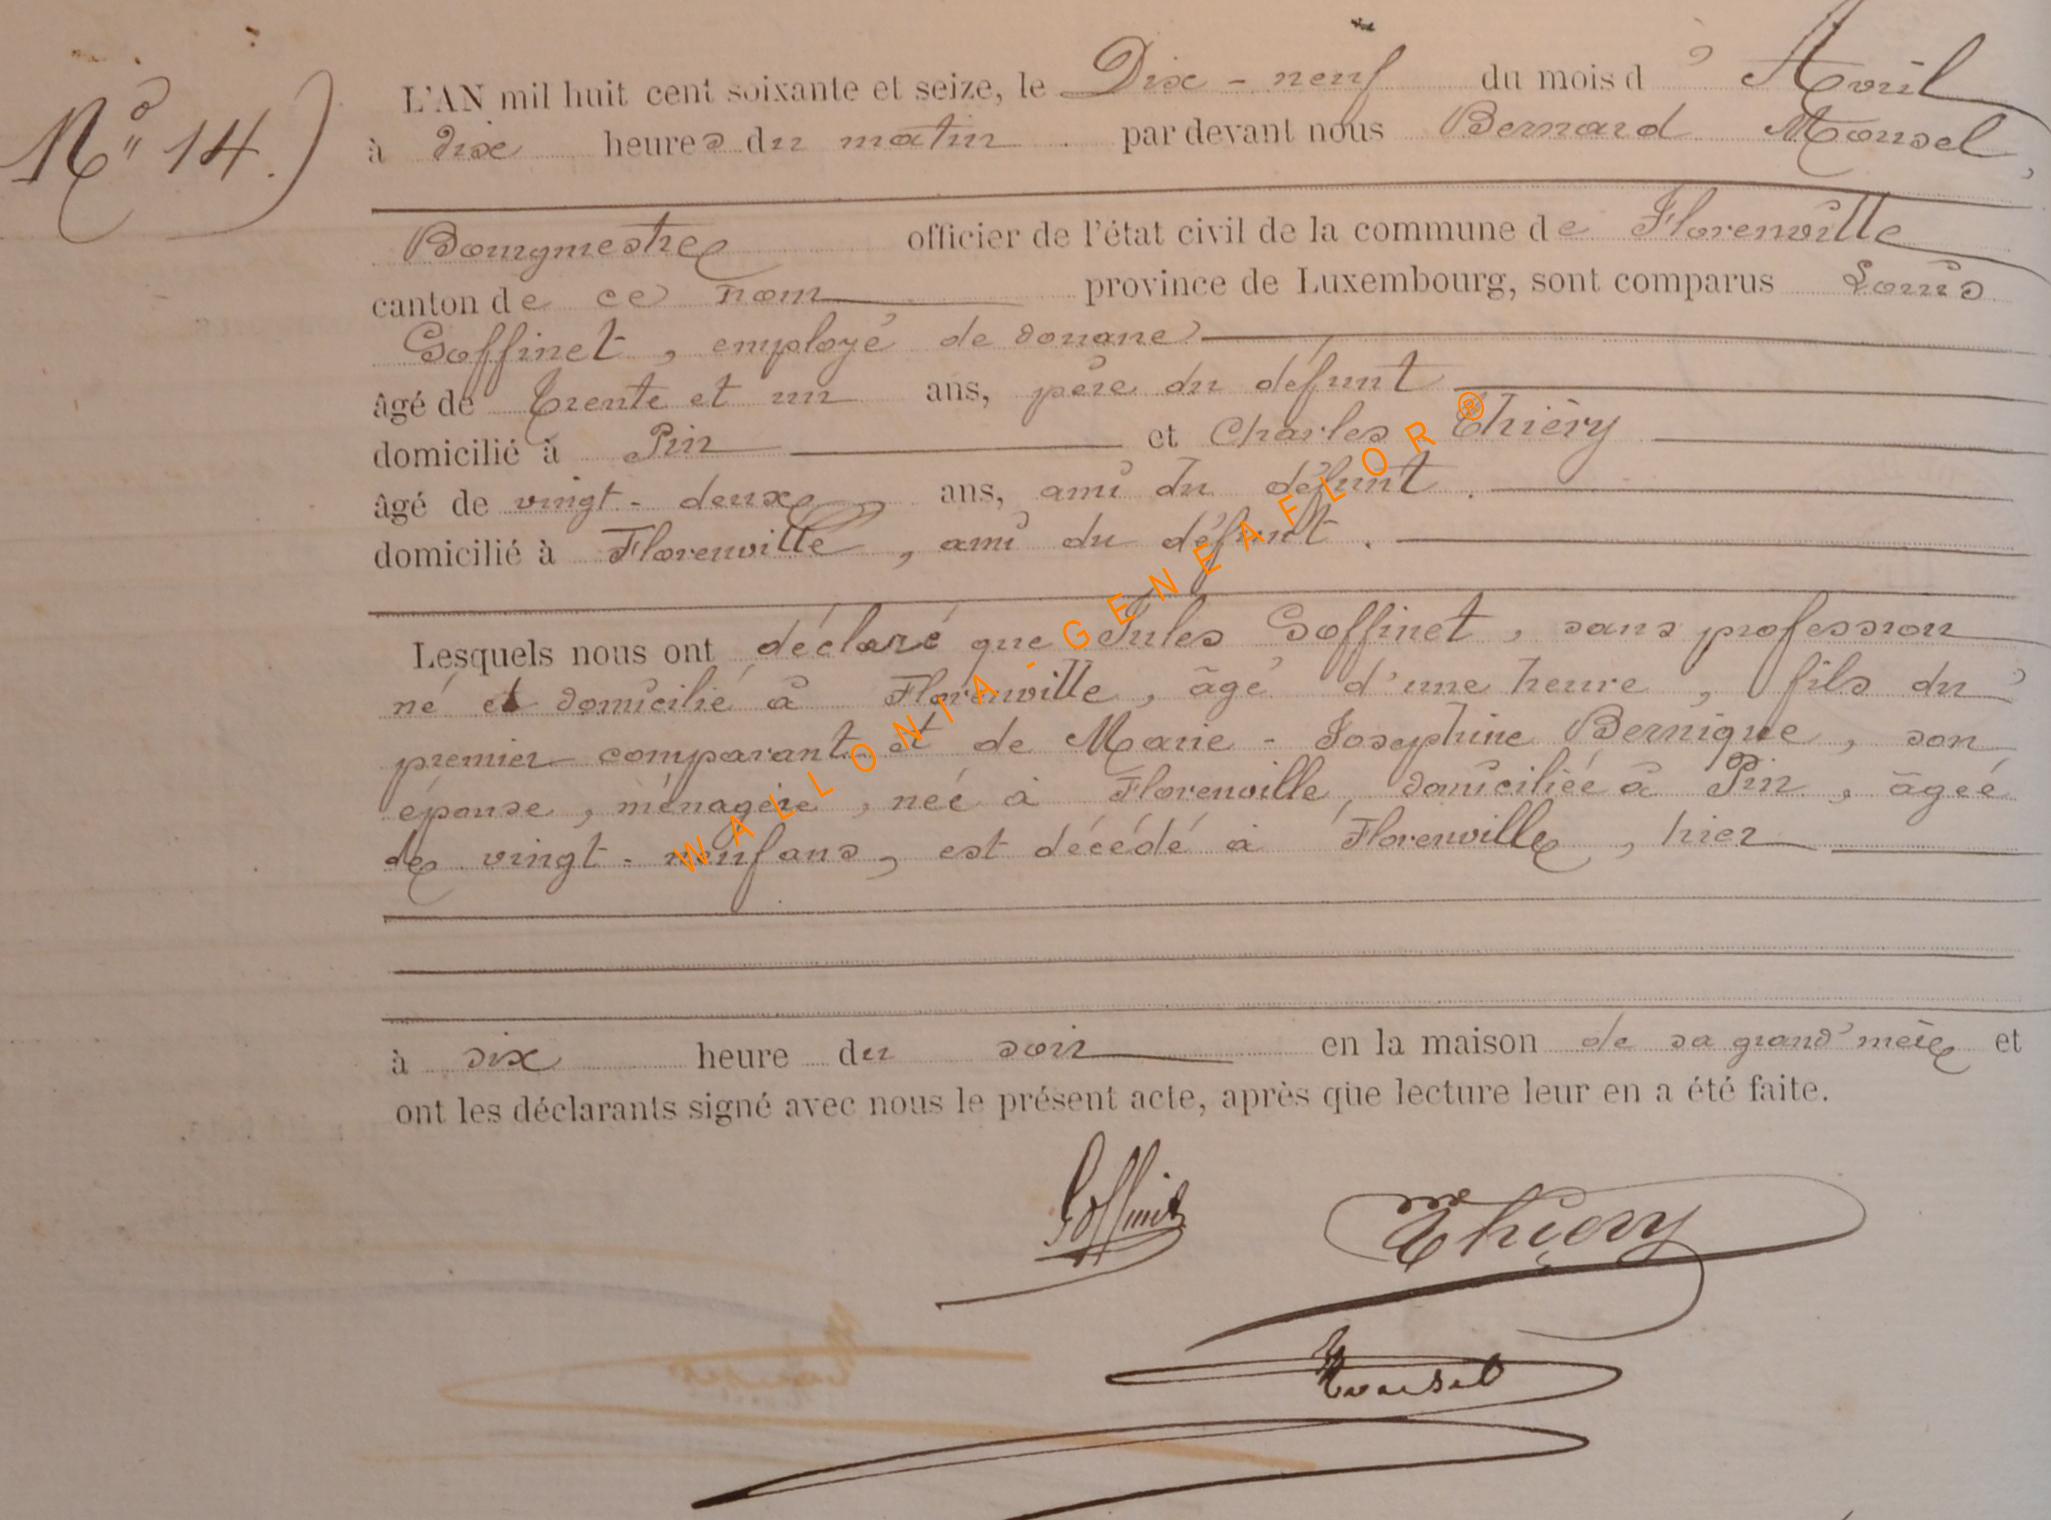 N° 14.)
L'AN mil huit cent soixante et seize, le Dix-neuf du mois d'Avril
à dix heures du matin par devant nous Bernard Mousel,
Bourgmestre officier de l'état civil de la commune de Florenville
canton de ce nom province de Luxembourg, sont comparus Louis
Goffinet, employé de douane
âgé de trente et un ans, père du défunt
domicilié à Pin et Charles Thiéry
âgé de vingt-deux ans, ami du défunt.
domicilié à Florenville, ami du défunt.
Lesquels nous ont déclaré que Jules Goffinet, sans profession
né et domicilié à Florenville, âgé d'une heure, fils du
premier comparant et de Marie-Josephine Bernique, son
épouse, ménagère, née à Florenville, domiciliée à Pin, âgée
de vingt-neuf ans, est décédé à Florenville, hier
à six heure du soir en la maison de sa grand'mère et
ont les déclarants signé avec nous le présent acte, après que lecture leur en a été faite.
Goffinet Thiery
Mousel
WALLONIA-GENEAFLOR®